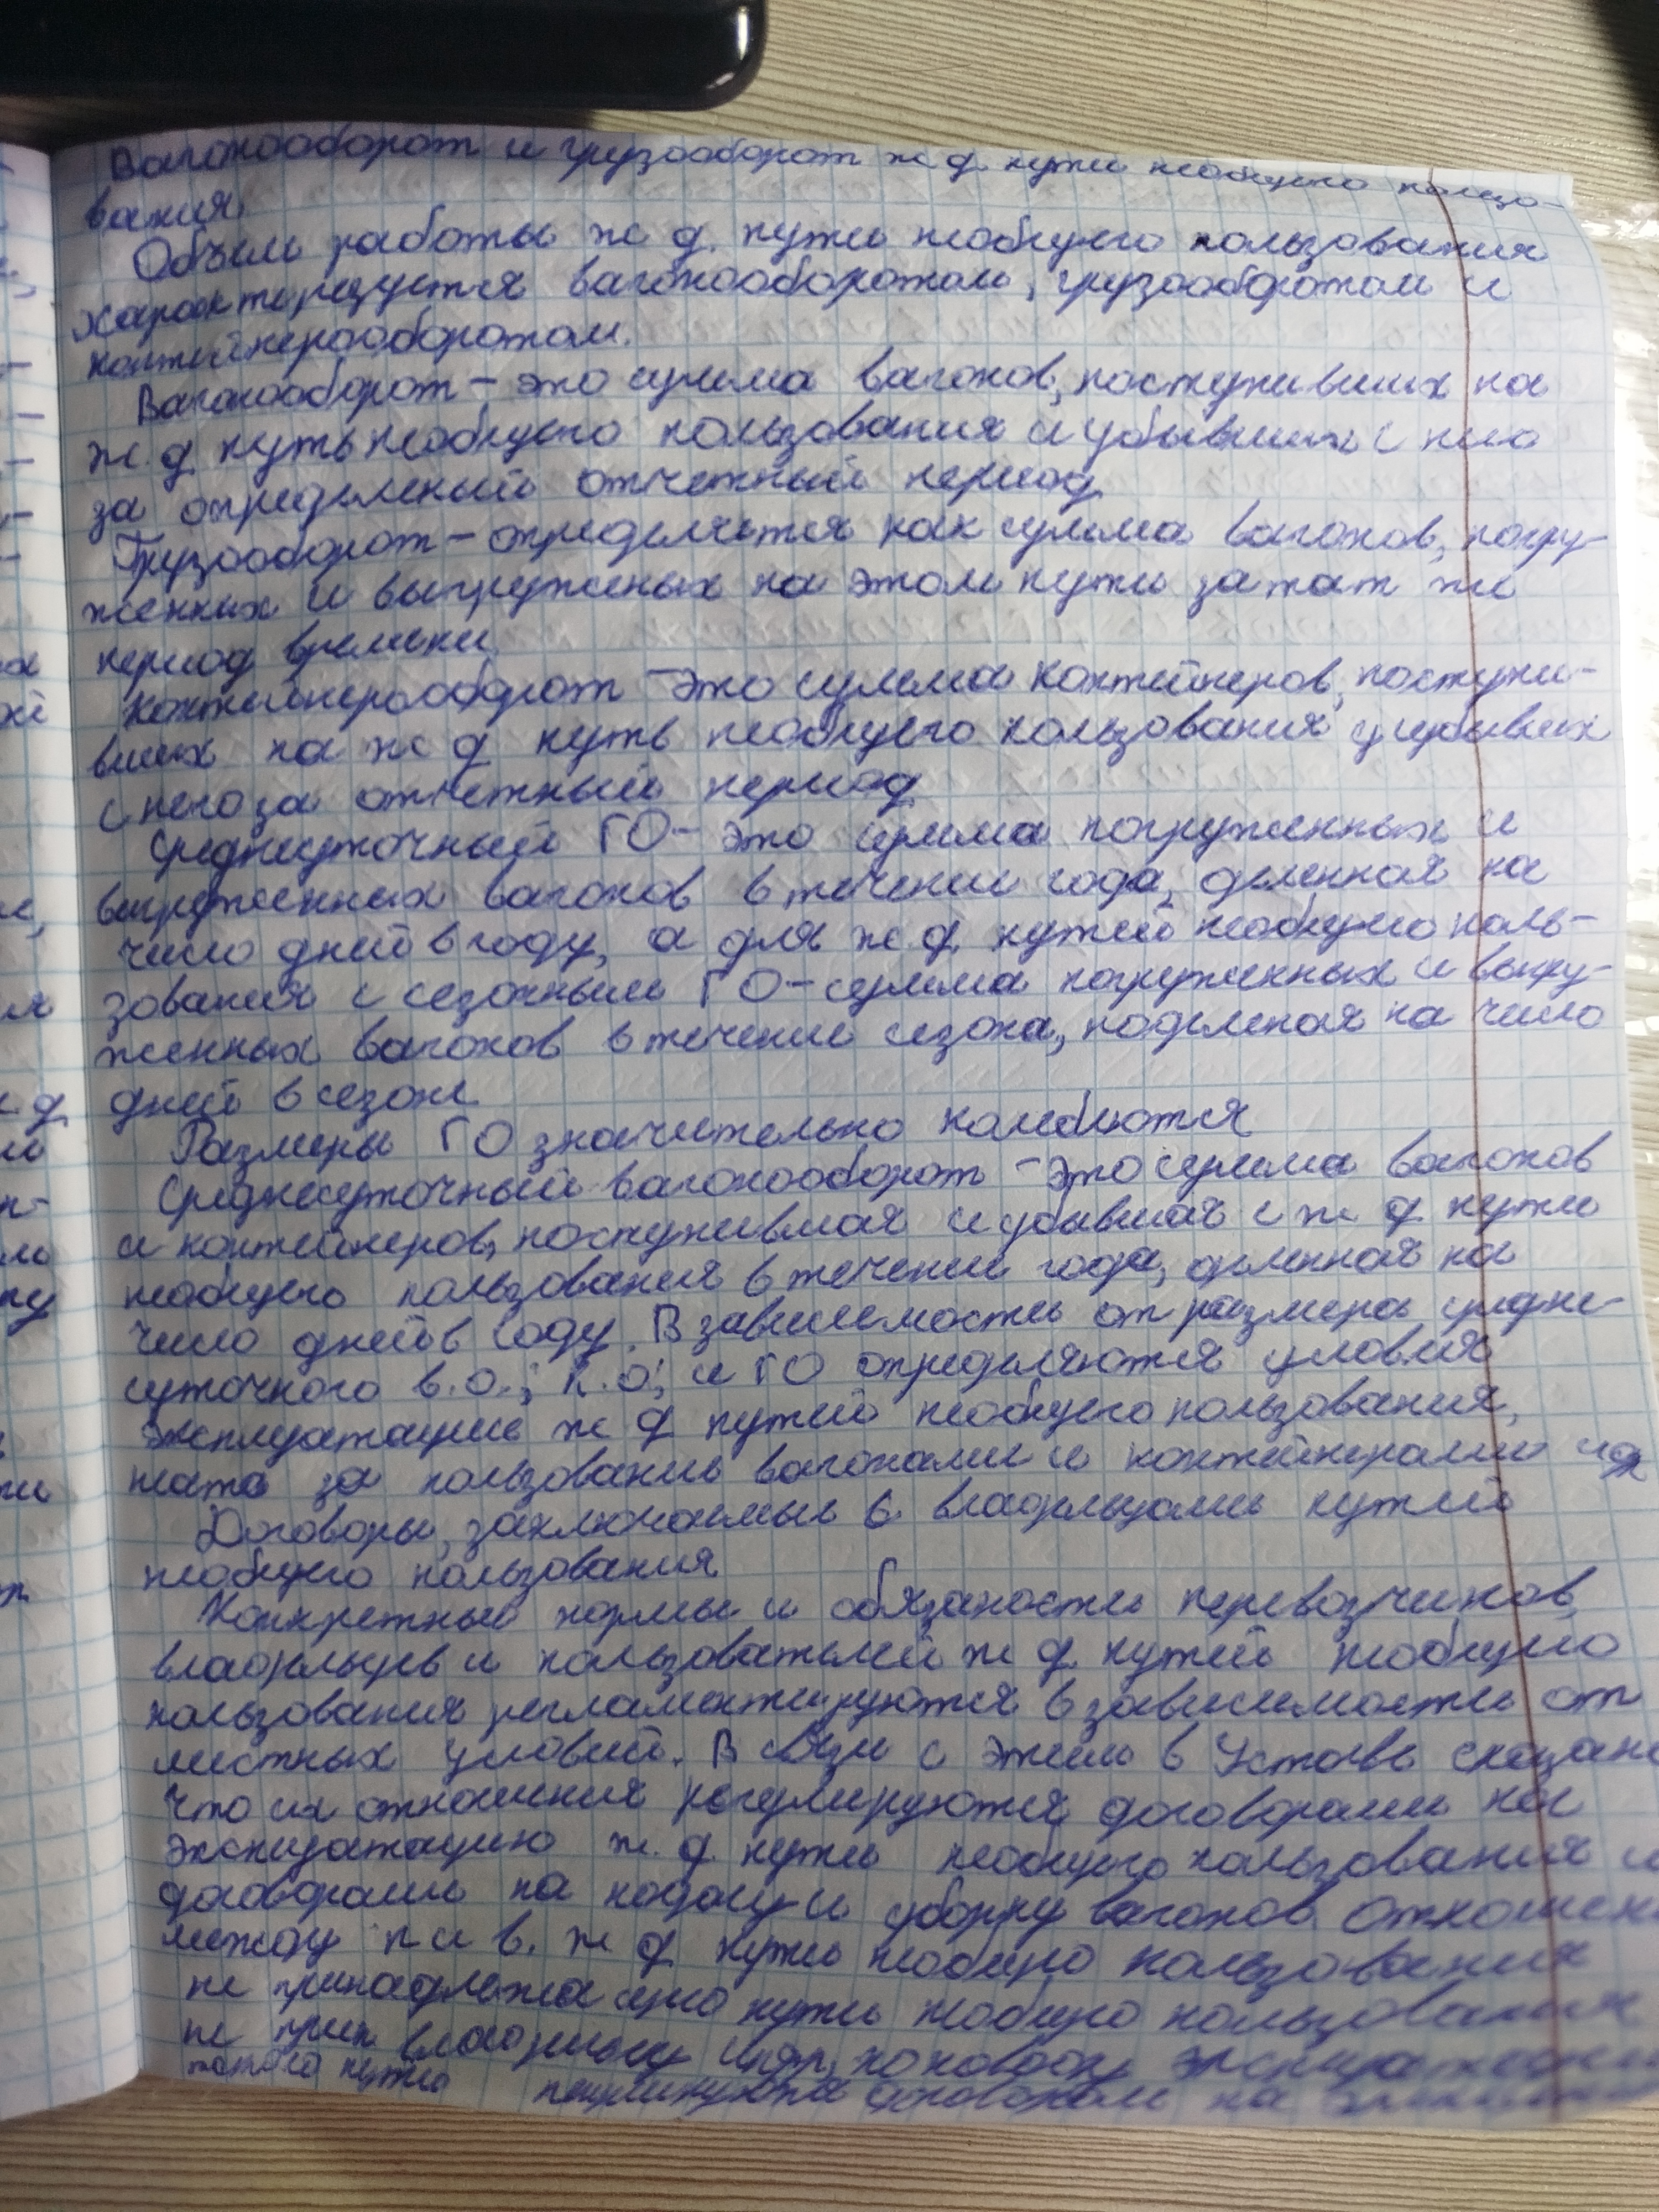 Вагонооборот и грузооборот ж д пути необщего пользо-
вания.
Объем работы ж д. пути необщего пользования
характеризуется вагонооборотом, грузооборотом и
контейнерооборотом.
Вагонооборот - это сумма вагонов, поступивших на
ж. д путь необщего пользования и убывших с него
за определеный отчетный период
Грузооборот - определяется как сумма вагонов, погру-
женных и выгруженых на этом пути за тат же
период времени
Контейнерооборот - это сумма контейнеров, поступи-
вших на ж д путь необщего пользования и убывших
с него за отчетный период
Среднесуточный ГО - это сумма погруженных и
выгруженных вагонов в течение года, деленная на
число дней в году, а для ж. д. путей необщего поль-
зования с сезонным ГО - сумма погруженных и выгру-
женных вагонов в течение сезона, поделеная на число
дней в сезоне
Размеры ГО значительно колеблются
Среднесуточный вагонооборот - это сумма вагонов
и контейнеров, поступившая и убывшая с ж д пути
необщего пользования в течении года, деленная на
число дней в году. В зависимости от размера средне-
суточного в.о.; к.о; и ГО определяются условия
эксплуатации ж д путей необщего пользования,
плата за пользование вагонами и контейнерами и др
Договоры, заключаемые с владельцами путей
необщего пользования
Конкретные нормы и обязаности перевозчиков,
владельцев и пользователей ж д путей необщего
пользования регламентируются в зависимости от
местных условий. В связи с этим в Уставе сказано
что их отношения регулируются договорами на
эксплуатацию ж. д. пути необщего пользования и
договорами на подачу и уборку вагонов. Отношени
между п и в. ж д пути необщего пользования
не принадлежащего пути необщего пользования
не прин владельцу инфр, по поводу
такого пути договором на